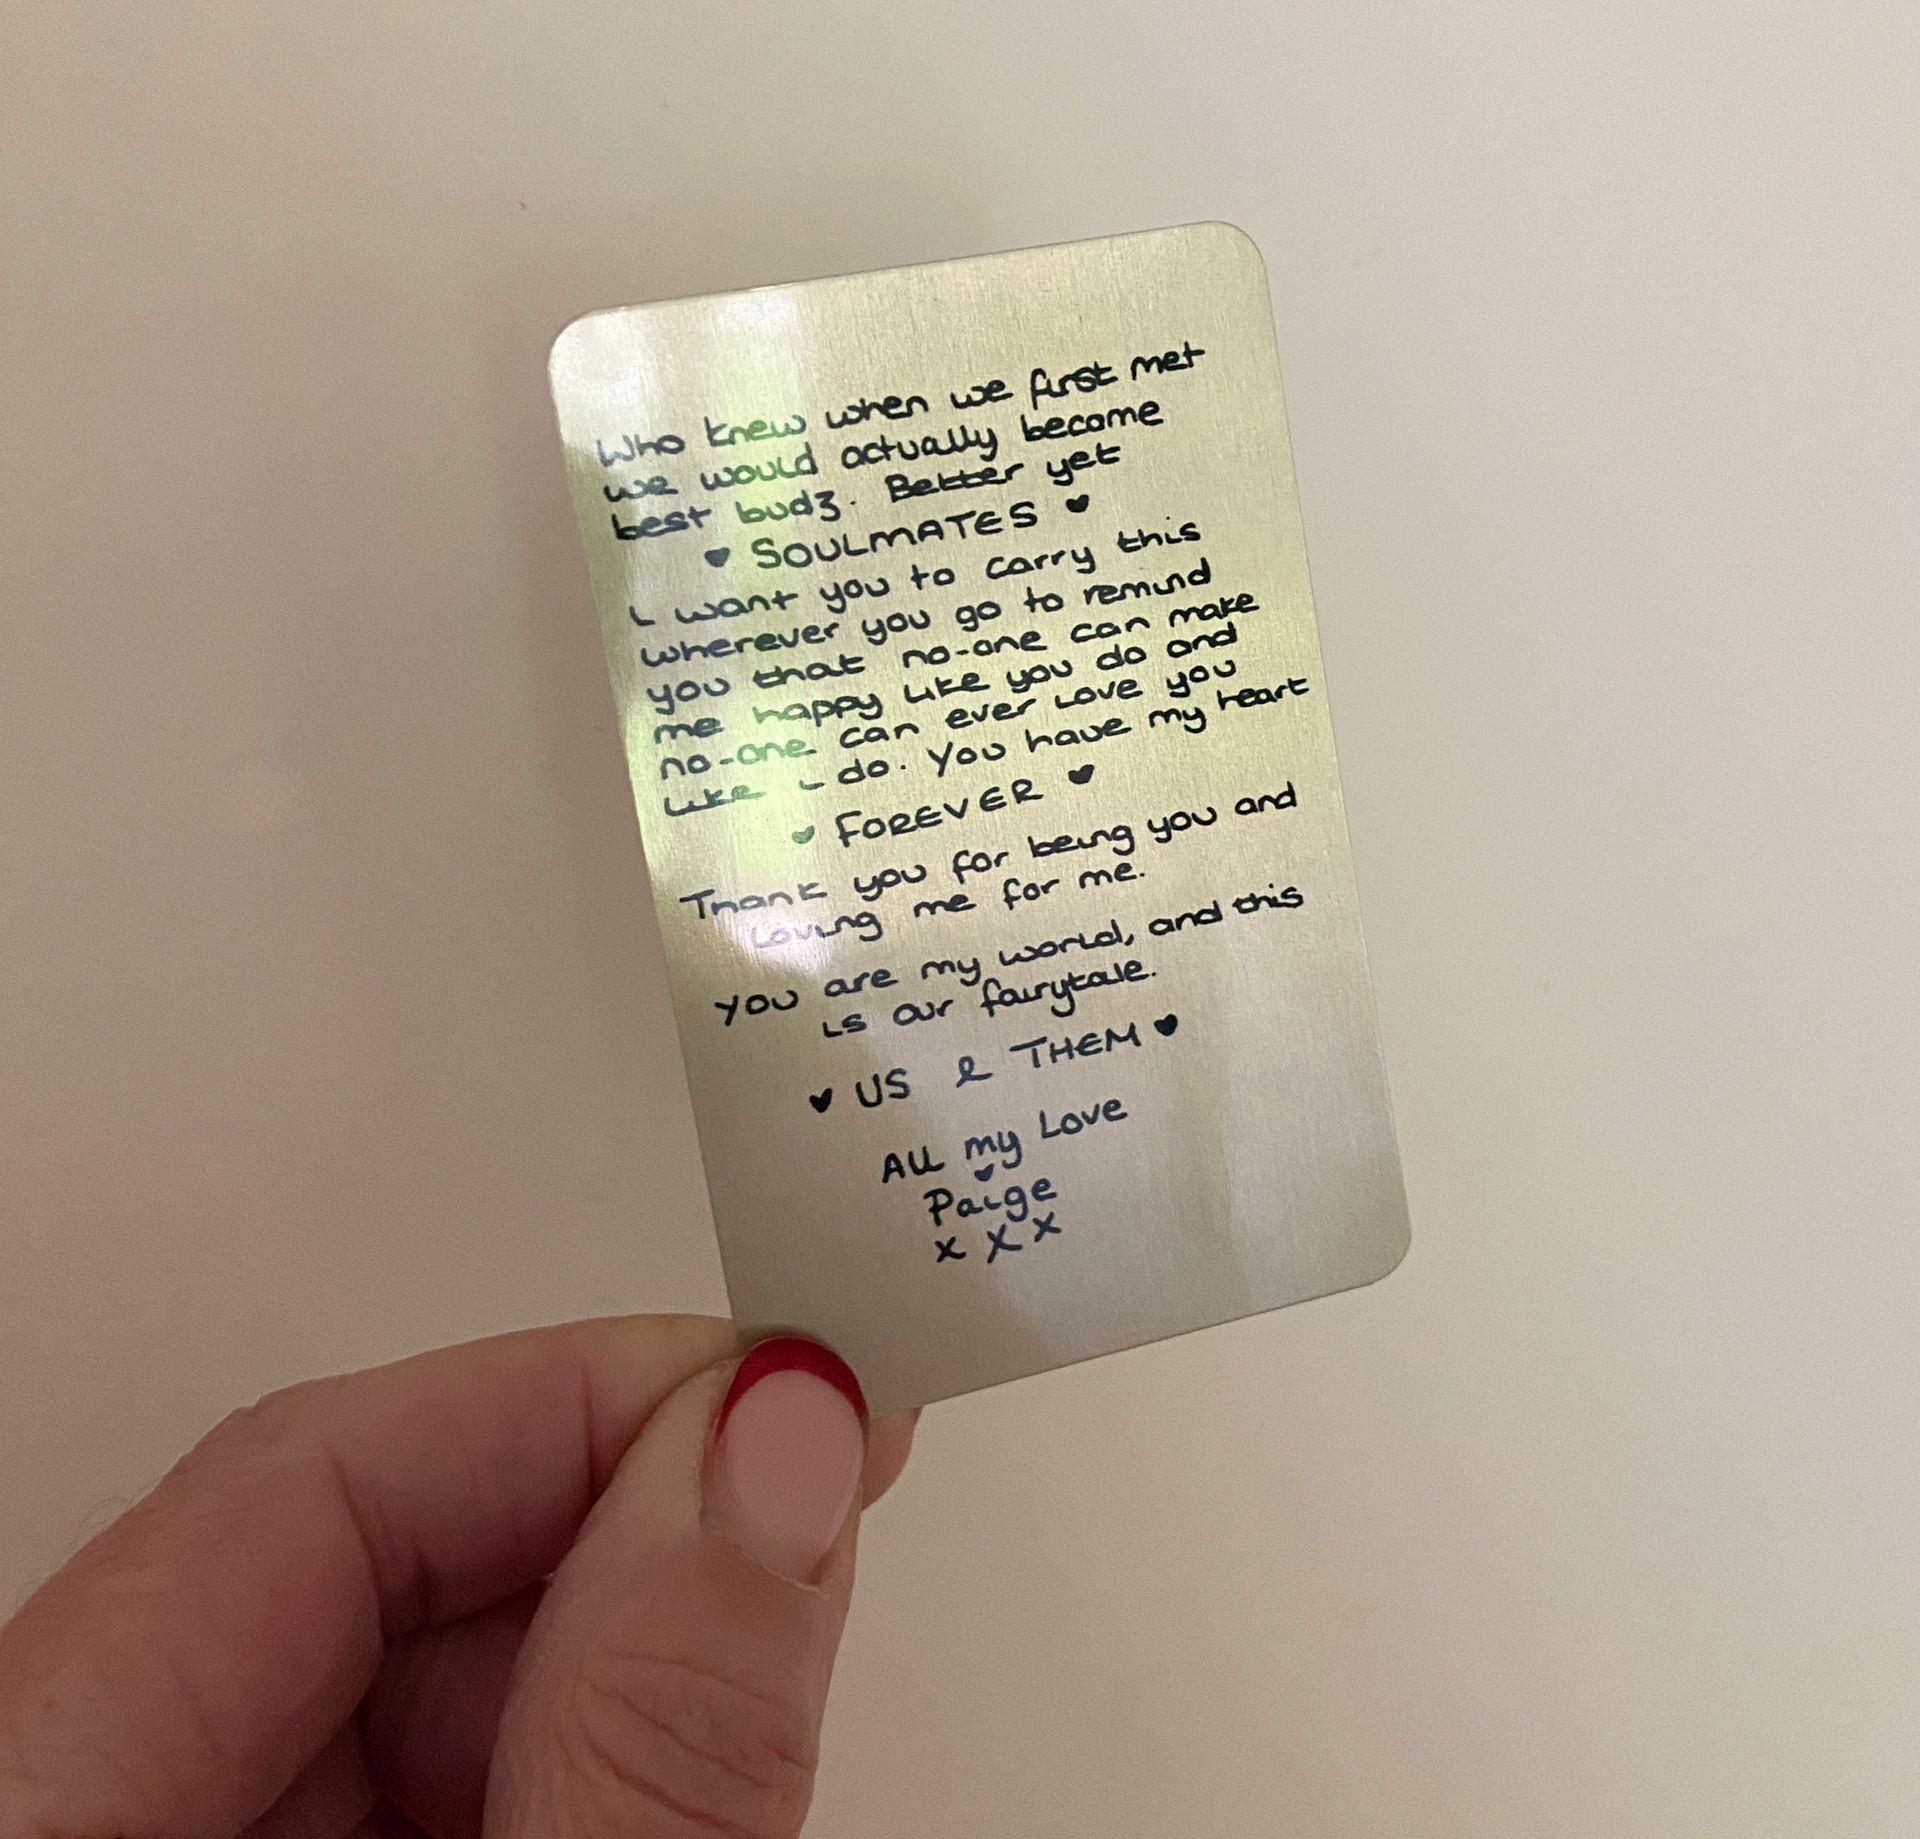 Who knew when we first met
we would actually become
best budz. Better yet
♥ SOULMATES ♥
I want you to carry this
wherever you go to remind
you that no-one can make
me happy like you do and
no-one can ever love you
like I do. You have my heart
♥ FOREVER ♥
Thank you for being you and
loving me for me.
You are my world, and this
is our fairytale.
♥ US & THEM ♥
All my Love
♥
Paige
x x x